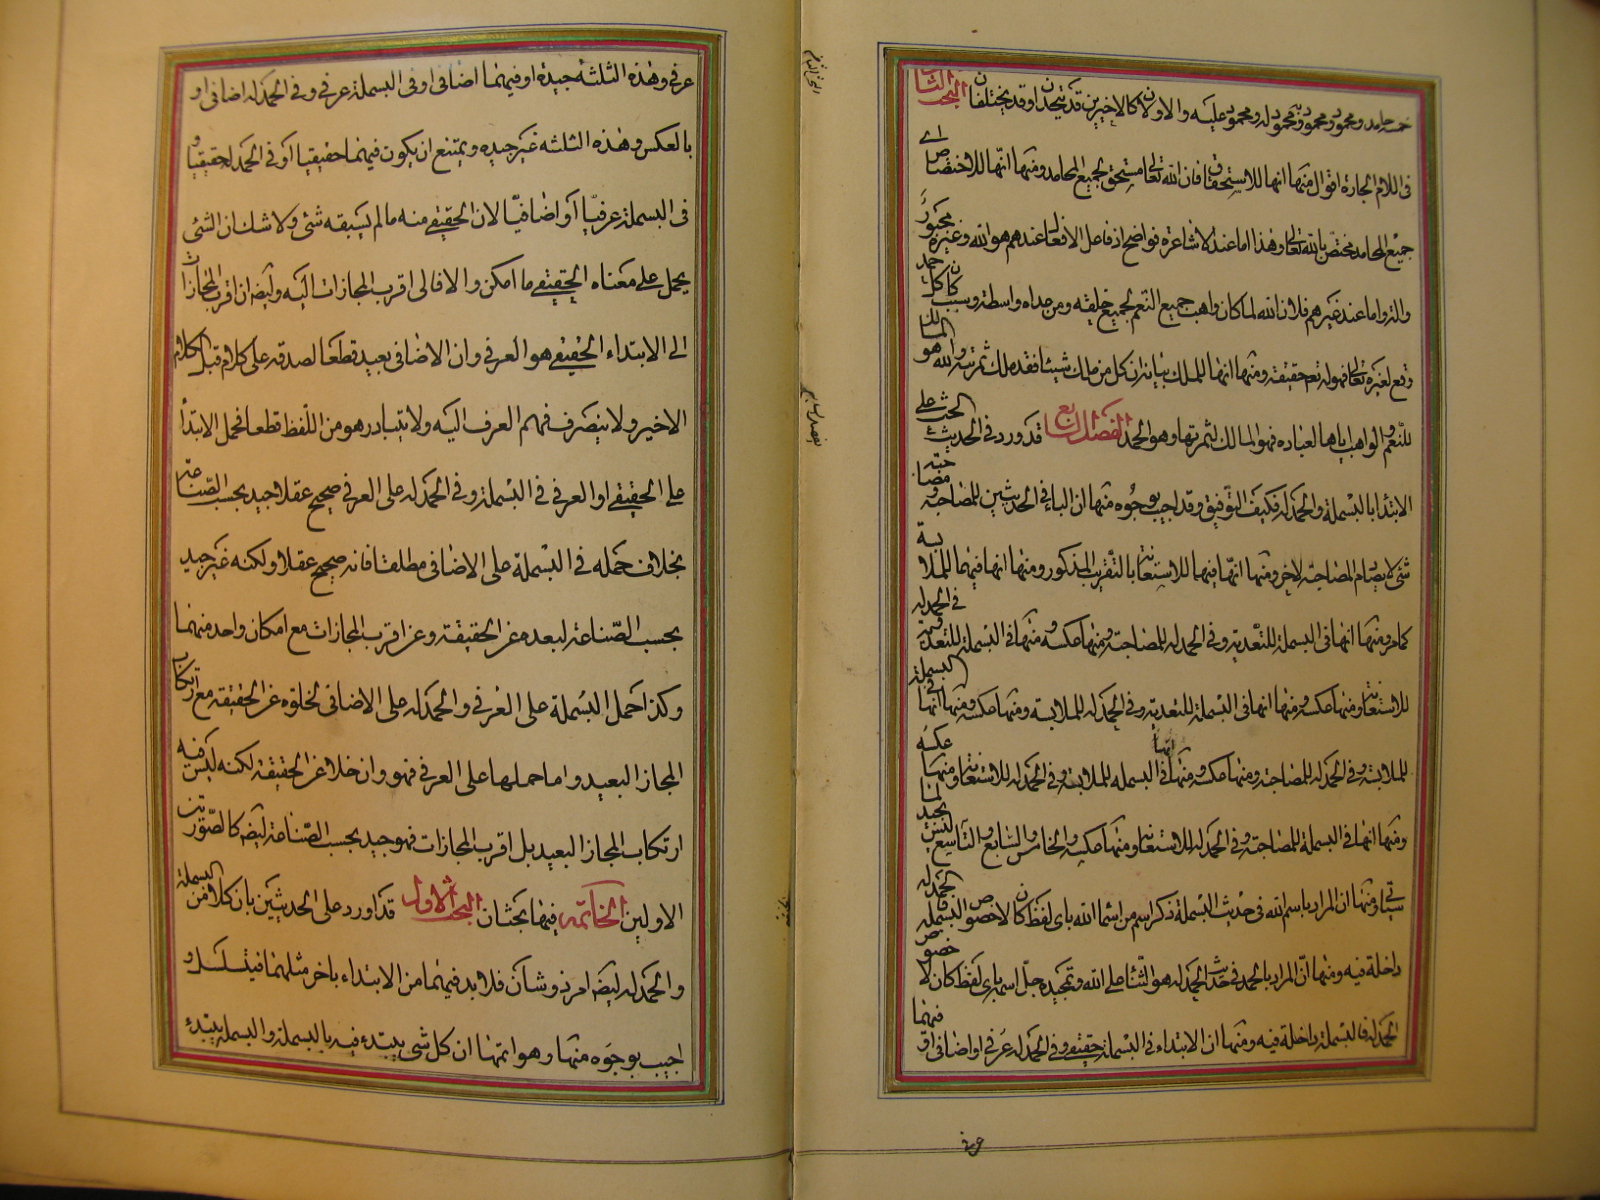 خمسة حامد ومحمود ومحمود به ومحمود له ومحمود عليه والاولان كالاخيرين قد يتحدان وقد يختلفان البحث الثالث
فى اللام الجارة اقوال منها انها للاستحقاق فان الله تعالى مستحق لجميع المحامد ومنها انها للاختصاص اى
جميع المحامد مختص بالله تعالى وهذا اما عند الاشاعرة فواضح اذ فاعل الافعال عندهم هو الله وغيره مجبور
واما عند غيرهم فلان الله لما كان واهب جميع النعم لجميع خليقته ومن عداه واسطة وسبب كان كل حمد
وقع لغيره تعالى فهو له تعم حقيقة ومنها انها للملك بيانه ان كل من ملك شيئا فقد ملك ثمرته والله هو المالك
للنعم والواهب اياها لعباده فهو المالك لثمرتها وهو الحمد الفصل الرابع قد ورد فى الحديث الحث على
الابتداء بالبسملة والحمدلة فكيف التوفيق وقد اجيب بوجوه منها ان الباء فى الحديثين للمصاحبة ومصاحبة
شئ لا يصادم المصاحبة لاخر ومنها انها فيهما للاستعانة بالتقريب المذكور ومنها انها فيهما للملابسة
كما مر ومنها انها فى البسملة للتعدية وفى الحمدلة للمصاحبة ومنها عكسه ومنها فى البسملة للتعدية وفى الحمدلة
للاستعانة ومنها عكسه ومنها انها فى البسملة للتعدية وفى الحمدلة للملابسة ومنها عكسه ومنها انها فى البسملة
للملابسة وفى الحمدلة للمصاحبة ومنها عكسه ومنها انها فى البسملة للملابسة وفى الحمدلة للاستعانة ومنها عكسه
ومنها انها فى البسملة للمصاحبة وفى الحمدلة للاستعانة ومنها عكسه والخامس والسابع والتاسع ليس بجيد لما
سيأتى ومنها ان المراد باسم الله فى حديث البسملة ذكر اسم من اسماء الله باى لفظ كان لا خصوص البسملة فالحمدلة
داخلة فيه ومنها ان المراد بالحمد فى حديث الحمدلة هو الثناء على الله وتمجيده جل اسمه باى لفظ كان لا خصوص
الحمدلة فالبسملة داخلة فيه ومنها ان الابتداء فى البسملة حقيقى وفى الحمدلة عرفى او اضافى او فيهما
عرفى
عرفى وهذه الثلثة جيدة او فيهما اضافى او فى البسملة عرفى وفى الحمدلة اضافى او
بالعكس وهذه الثلثة غير جيدة ويمتنع ان يكون فيهما حقيقيا او فى الحمدلة حقيقيا و
فى البسملة عرفيا او اضافيا لان الحقيقى منه ما لم يسبقه شئ ولا شك ان الشئ
يحمل على معناه الحقيقى ما امكن والا فالى اقرب المجازات اليه وايضا ان اقرب المجازات
الى الابتداء الحقيقى هو العرفى وان الاضافى بعيد قطعا لصدقه على كلام قبل الكلام
الاخير ولا ينصرف فهم العرف اليه ولا يتبادر هو من اللفظ قطعا فحمل الابتداء
على الحقيقى او العرفى فى البسملة وفى الحمدلة على العرفى صحيح عقلا جيد بحسب الصناعة
بخلاف حمله فى البسملة على الاضافى مطلقا فانه صحيح عقلا ولكنه غير جيد
بحسب الصناعة لبعده عن الحقيقة وعن اقرب المجازات مع امكان واحد منهما
وكذا حمل البسملة على العرفى والحمدلة على الاضافى لخلوه عن الحقيقة مع ارتكاب
المجاز البعيد واما حملها على العرفى فهو وان خلا عن الحقيقة لكنه ليس فيه
ارتكاب المجاز البعيد بل اقرب المجازات فهو جيد بحسب الصناعة ايضا كالصورتين
الاولين الخاتمة فيها بحثان البحث الاول قد اورد على الحديثين بان كلا من البسملة
والحمدلة ايضا امر ذو شأن فلا بد فيهما من الابتداء باخر مثلهما فيتسلسل و
اجيب بوجوه منها وهو اتمها ان كل شى يبتدء فيه بالبسملة والبسملة يبتدء